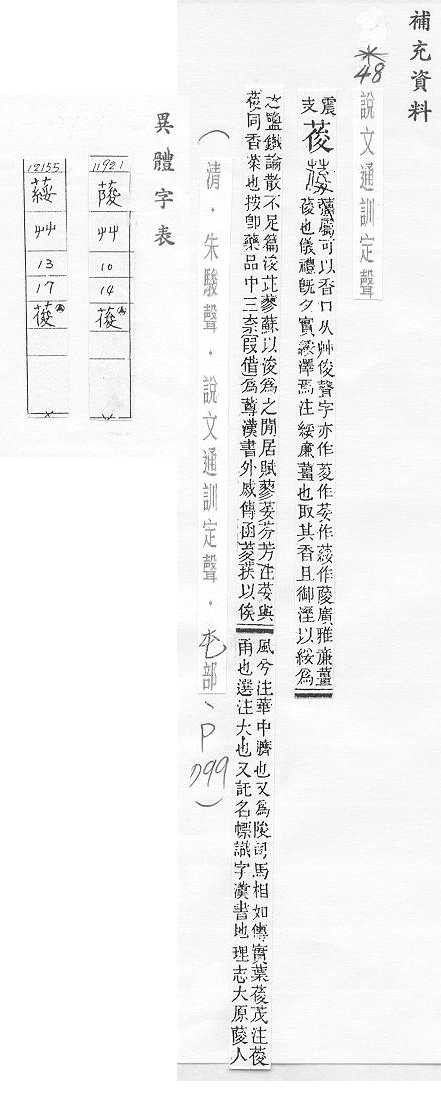 補充資料
*48
說文通訓定聲
震
支
葰
薑屬可以香口从艸俊聲字亦作荾作荽作葰作䔖廣雅廉薑
葰也儀禮旣夕實綏澤焉注綏廉薑也取其香且御溼以綏爲
之鹽鐵論散不足篇浚茈蓼蘇以浚爲之閒居賦蓼荾芬芳注荾與
葰同香菜也按卽藥品中三柰叚借爲蕣漢書外戚傳函荾荴以俟
風兮注華中臍也又爲陖司馬相如傳實葉葰茂注葰
甬也選注大也又託名幖識字漢書地理志大原葰人
(清.朱駿聲.說文通訓定聲.屯部、P799)
異體字表
11921
䔖
艸
10
14
葰
12155
荽
艸
13
17
葰